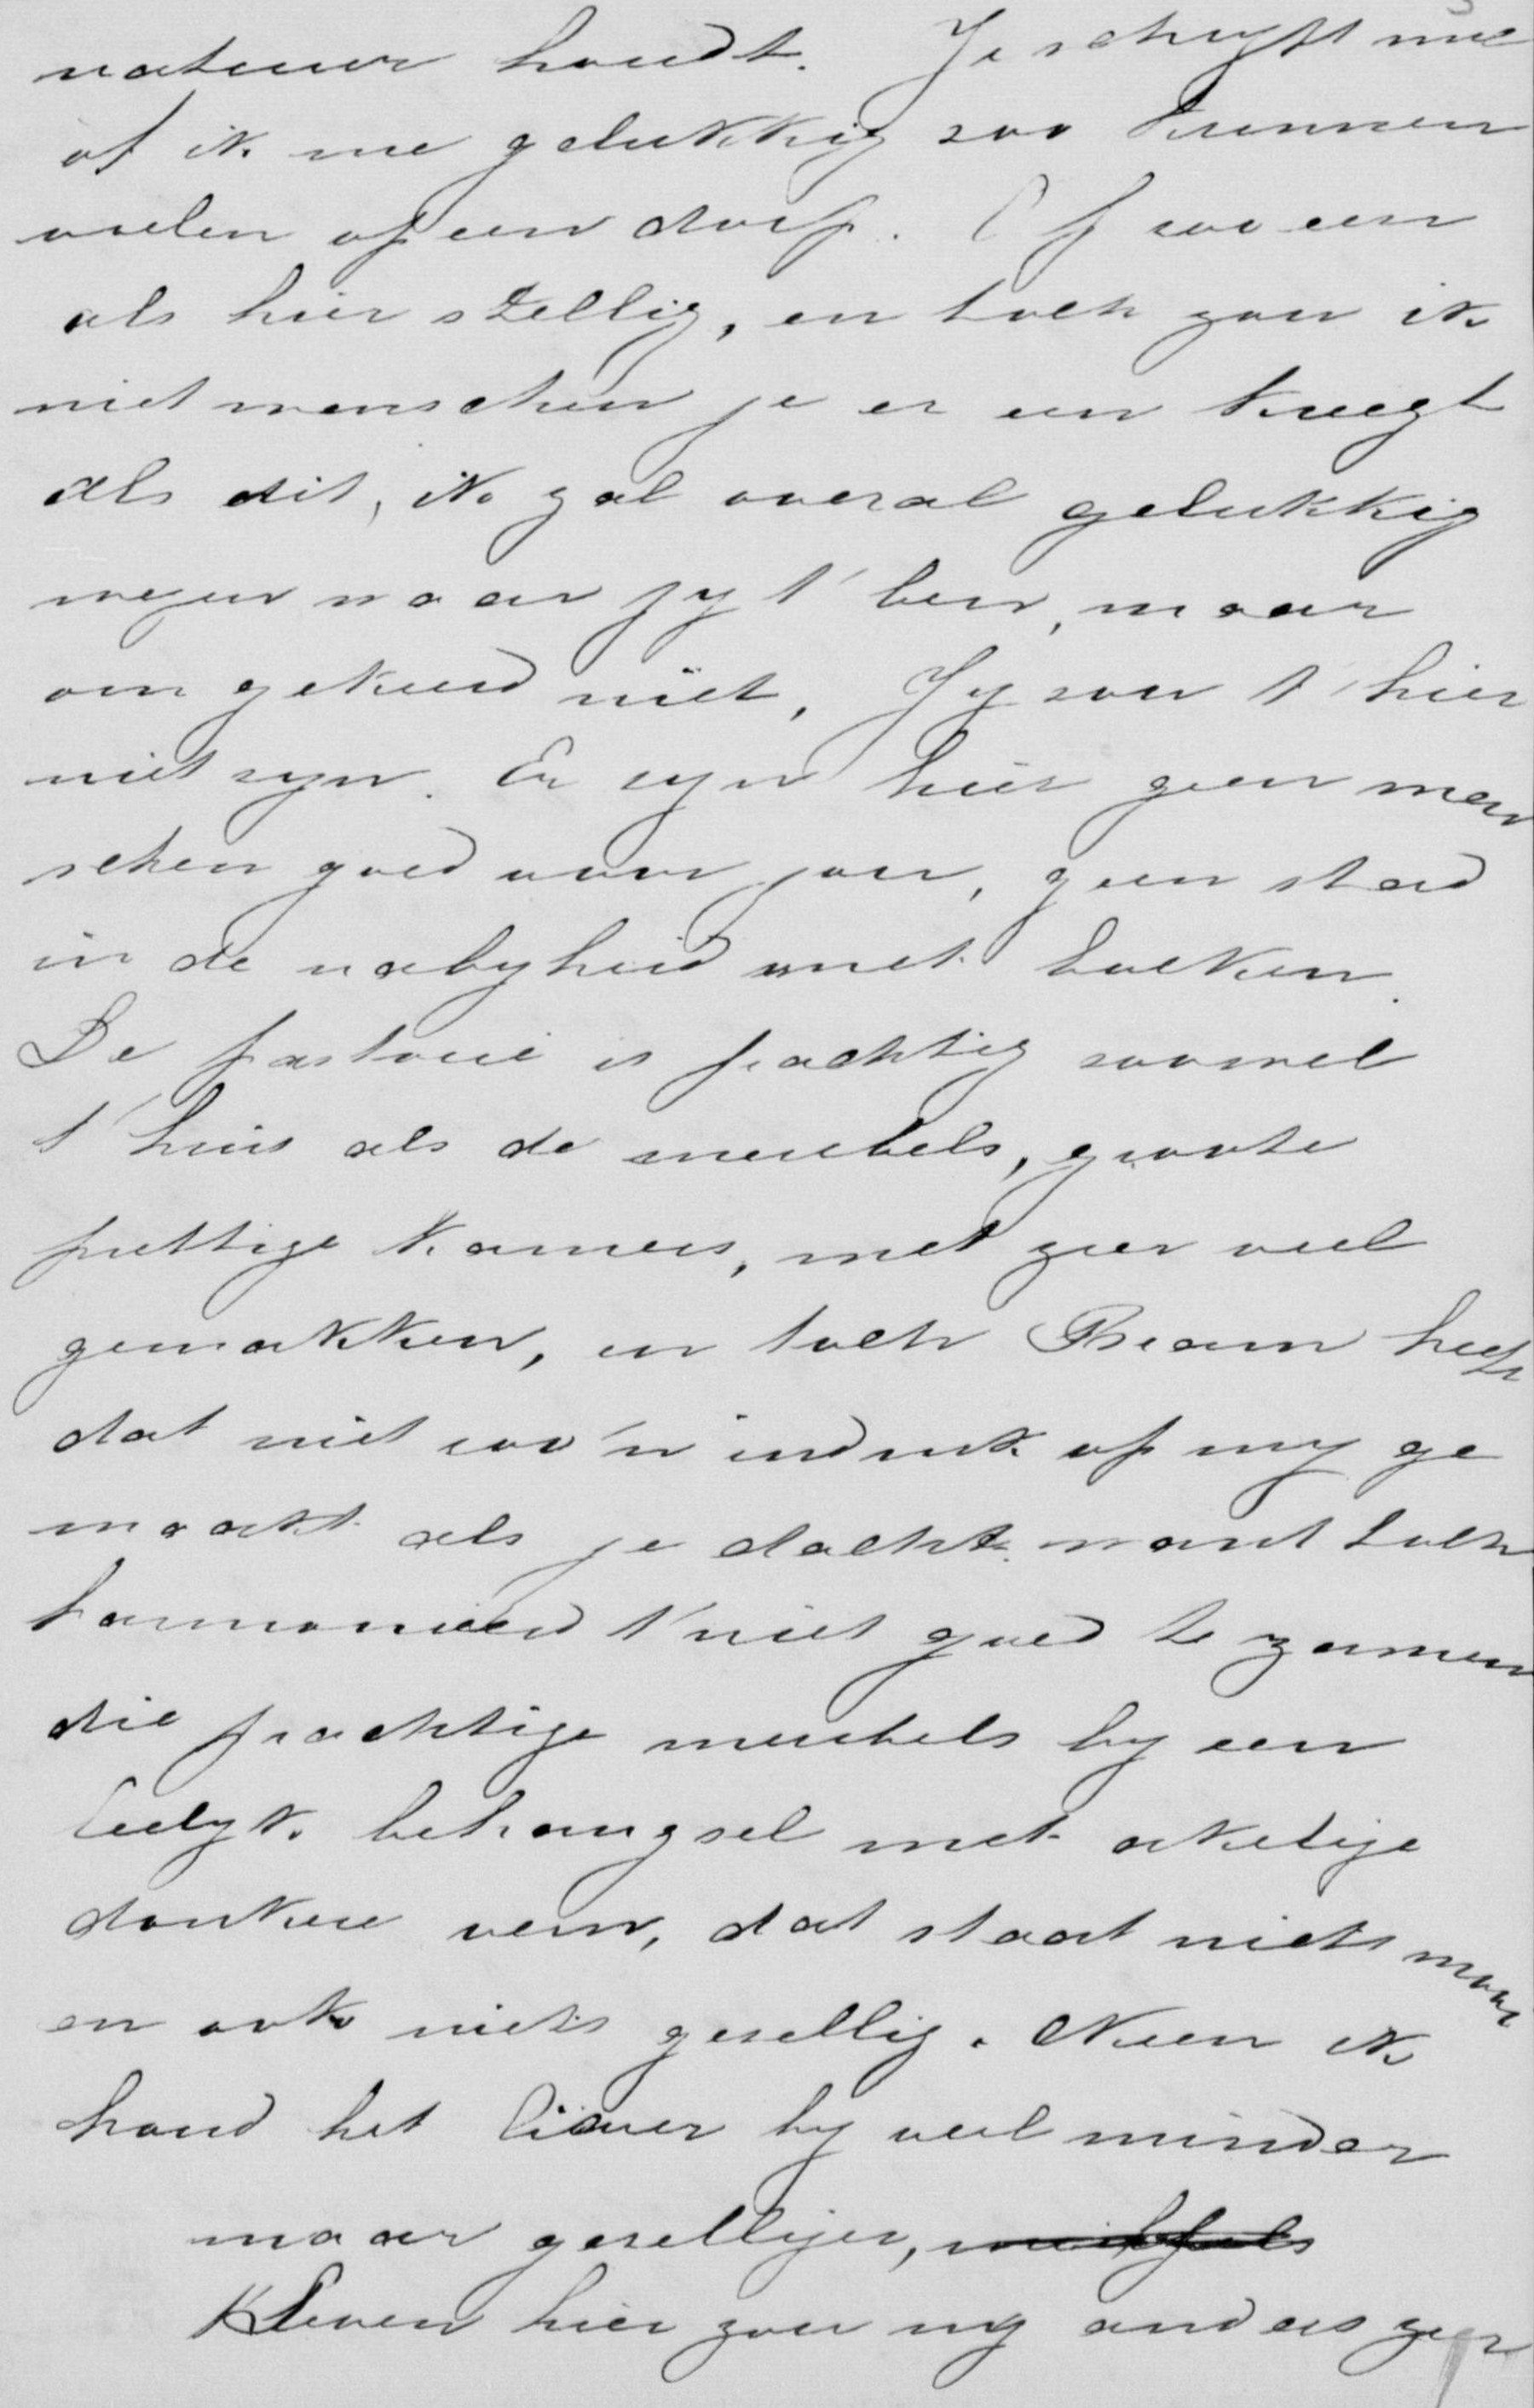 natuur houdt. Je schryft me
of ik me gelukkig zoo kunnen
voelen op een dorp. Op zoo een
als hier stellig, en toch zou ik
niet wenschen je er een kreegt
als dit, ik zal overal gelukkig
wezen waar jy 't ben, maar
omgekeerd niet, Jy zou 't hier
niet zyn. Er zyn hier geen men
schen goed voor jou, geen stad
in de nabyheid met boeken.
De pastorie is prachtig zoowel
't huis als de meubels, groote
prettige kamers, met zeer veel
gemakken, en toch Bram heeft
dat niet zoo'n indruk op my ge
maakt als je dacht want toch
harmonieerd 't niet goed te zamen
die prachtige meubels by een
leelyk behangsel met akelige
donkere verw, dat staat niets mooi
en ook niets gezellig. Neen ik
houd het liever by veel minder
maar gezelliger,
Leven hier zou my anders zeer